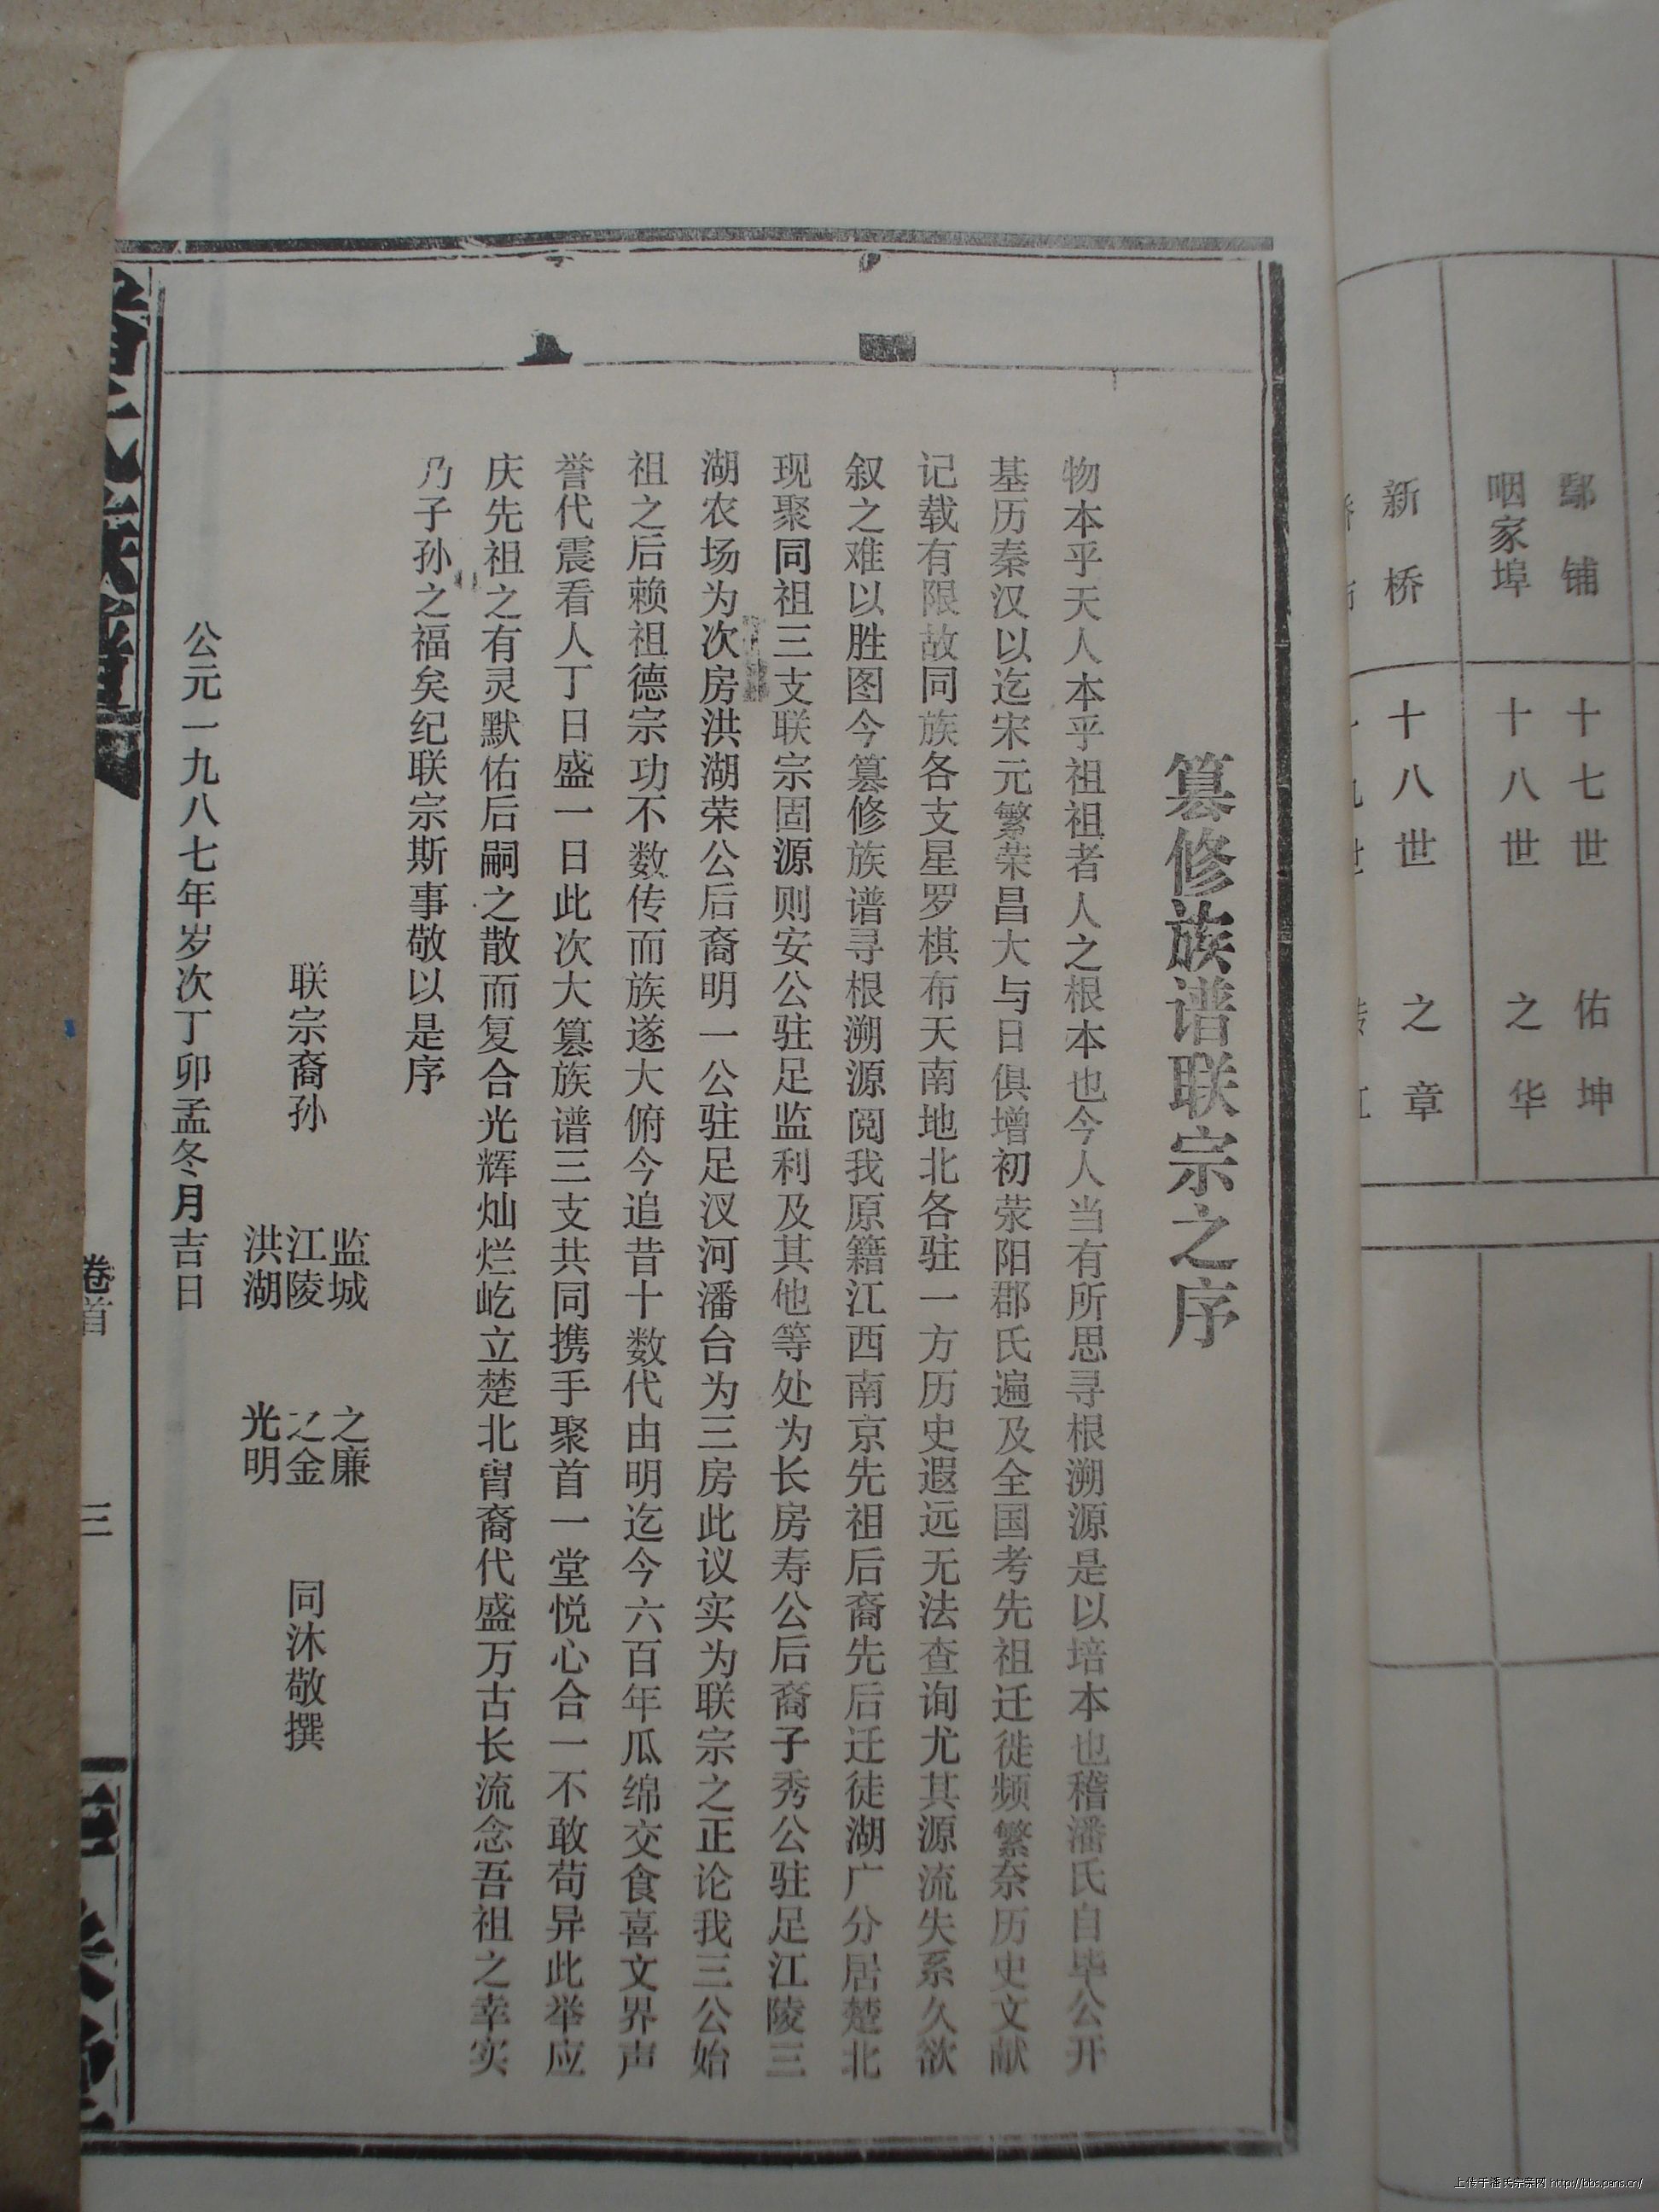 新桥
十八世
之章
咽家埠
十八世
之华
鄢铺
十七世
佑坤
篡修族谱联宗之序
物本乎天人本乎祖祖者人之根本也今人当有所思寻根溯源是以培本也稽潘氏自毕公开
基历秦汉以迄宋元繁荣昌大与日俱增初荥阳郡氏遍及全国考先祖迁徙频繁奈历史文献
记载有限故同族各支星罗棋布天南地北各驻一方历史遐远无法查询尤其源流失系久欲
叙之难以胜图今篡修族谱寻根溯源阅我原籍江西南京先祖后裔先后迁徒湖广分居楚北
现聚同祖三支联宗固源则安公驻足监利及其他等处为长房寿公后裔子秀公驻足江陵三
湖农场为次房洪湖荣公后裔明一公驻足汊河潘台为三房此议实为联宗之正论我三公始
祖之后赖祖德宗功不数传而族遂大俯今追昔十数代由明迄今六百年瓜绵交食喜文界声
誉代震看人丁日盛一日此次大篡族谱三支共同携手聚首一堂悦心合一不敢苟异此举应
庆先祖之有灵默佑后嗣之散而复合光辉灿烂屹立楚北胄裔代盛万古长流念吾祖之幸实
乃子孙之福矣纪联宗斯事敬以是序
联宗裔孙
监城 之廉
江陵 之金
洪湖 光明
同沐敬撰
公元一九八七年岁次丁卯孟冬月吉日
卷首
三
上传于潘氏宗亲网 http://bbs.pans.cn/